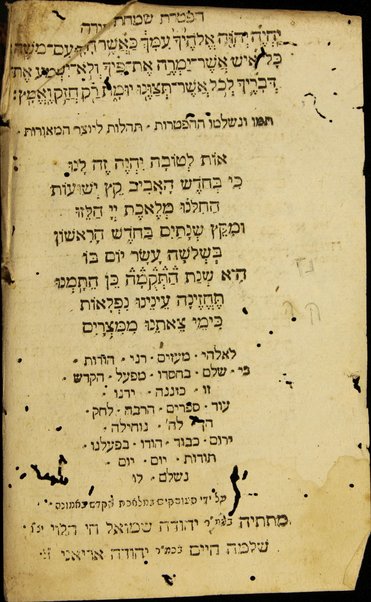 הפטרת שמחת תורה
יִהְיֶה יְהֹוָה אֱלֹהֶיךָ עִמָּךְ כַּאֲשֶׁר הָיָה עִם־מֹשֶׁה׃
כָּל־אִישׁ אֲשֶׁר־יַמְרֶה אֶת־פִּיךָ וְלֹא־יִשְׁמַע אֶת־
דְּבָרֶיךָ לְכֹל אֲשֶׁר־תְּצַוֶּנּוּ יוּמָת רַק חֲזַק וֶאֱמָץ׃
תמו ונשלמו ההפטרות · תהלות ליוצר המאורות ·
אוֹת לְטוֹבָה יִהְיֶה זֶה לָנוּ
כִּי בְּחֹדֶשׁ הָאָבִיב קֵץ יְשׁוּעוֹת
הִחִלּוֹנוּ מְלֶאכֶת יְיָ הַלָּזוּ
וּמִקֵּץ שְׁנָתַיִם בַּחֹדֶשׁ הָרִאשׁוֹן
בִּשְׁלֹשָׁה עָשָׂר יוֹם בּוֹ
הִיא שְׁנַת הַתְּקֻמָה כֵּן הִתַמְנוּ
תֶּחֱזֶינָה עֵינֵינוּ נִפְלָאוֹת
כִּימֵי צֵאתֵנוּ מִמִּצְרַיִם
לאלהי · מעוזים · רני · הודות ·
כי · שלם · בחסדו · מפעל · הקדש ·
זו · כוננה · ידנו ·
עוד · ספרים · הרבה · לחק ·
הך · לה' · נוחילה ·
ירום · כבוד · הודו · בפעלנו ·
תודות · יום · יום ·
נשלם · לו
על ידי העוסקים במלאכת הקדש באמונה
מתתיה יהודה שמואל חי הלוי
שלמה חיים יהודה אריאני